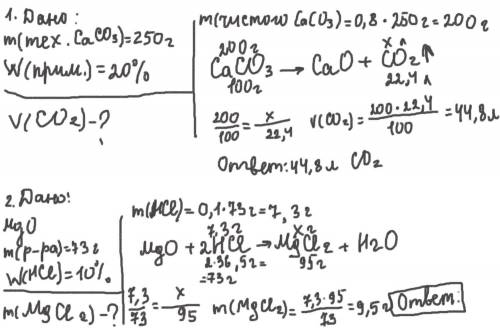 1. Дано:
m(тех. CaCO3)=250г
W(прим.)=20%
V(CO2)-?
m(чистого CaCO3)=0,8·250г=200г
200г x л
CaCO3 → CaO + CO2↑
100г 22,4 л
200/100 = x/22,4 V(CO2)= 200·22,4/100 =44,8л
Ответ: 44,8л CO2
2. Дано:
MgO
m(р-ра)=73г
W(HCl)=10%
m(MgCl2)-?
m(HCl)=0,1·73г=7,3г
7,3г x г
MgO + 2HCl → MgCl2 + H2O
2·36,5г= 95г
=73г
7,3/73 = x/95 m(MgCl2)= 7,3·95/73 =9,5г Ответ: